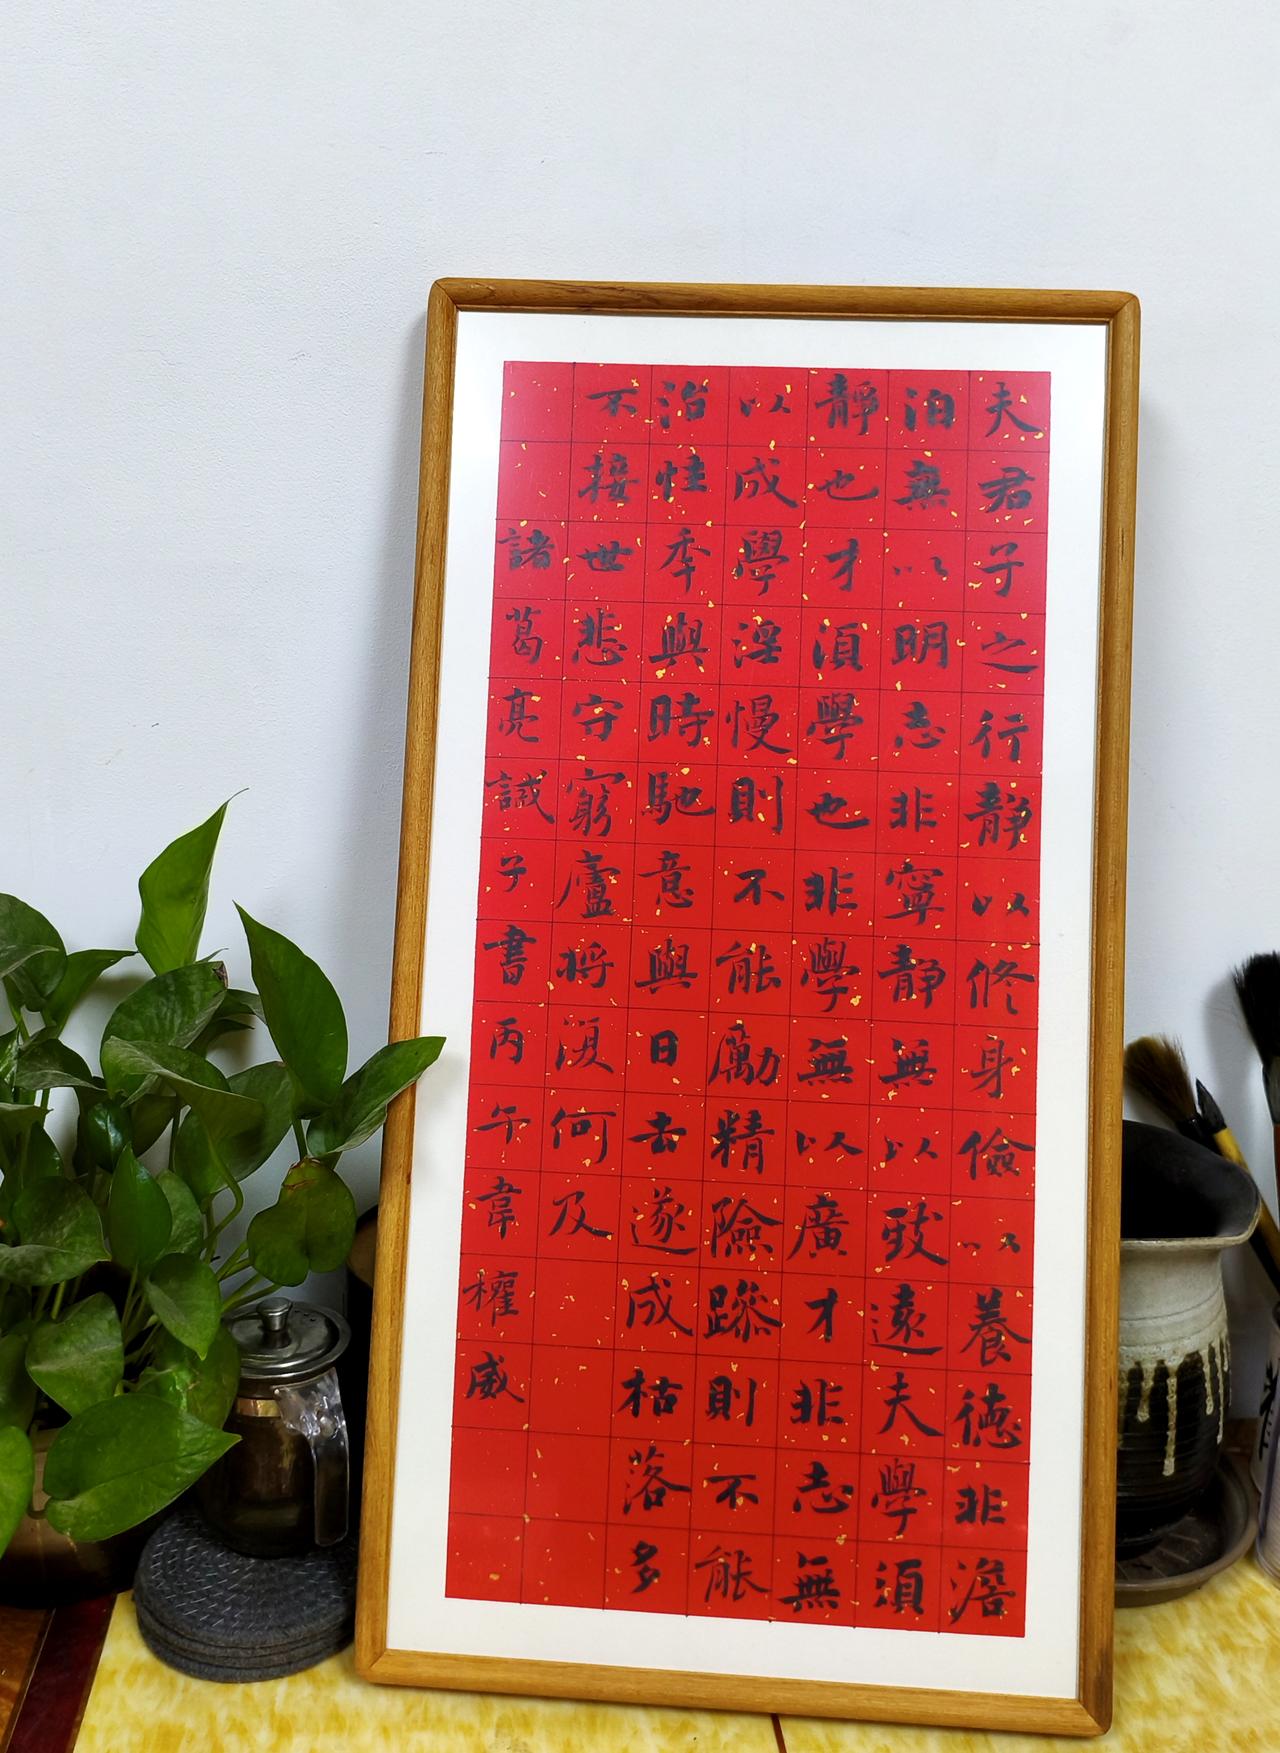 夫君子之行靜以修身儉以養德非澹
泊無以明志非寧靜無以致遠夫學須
靜也才須學也非學無以廣才非志無
以成學淫慢則不能勵精險躁則不能
治性秊與時馳意與日去遂成枯落多
不接世悲守窮廬將復何及
諸葛亮誡子書丙午韋權威